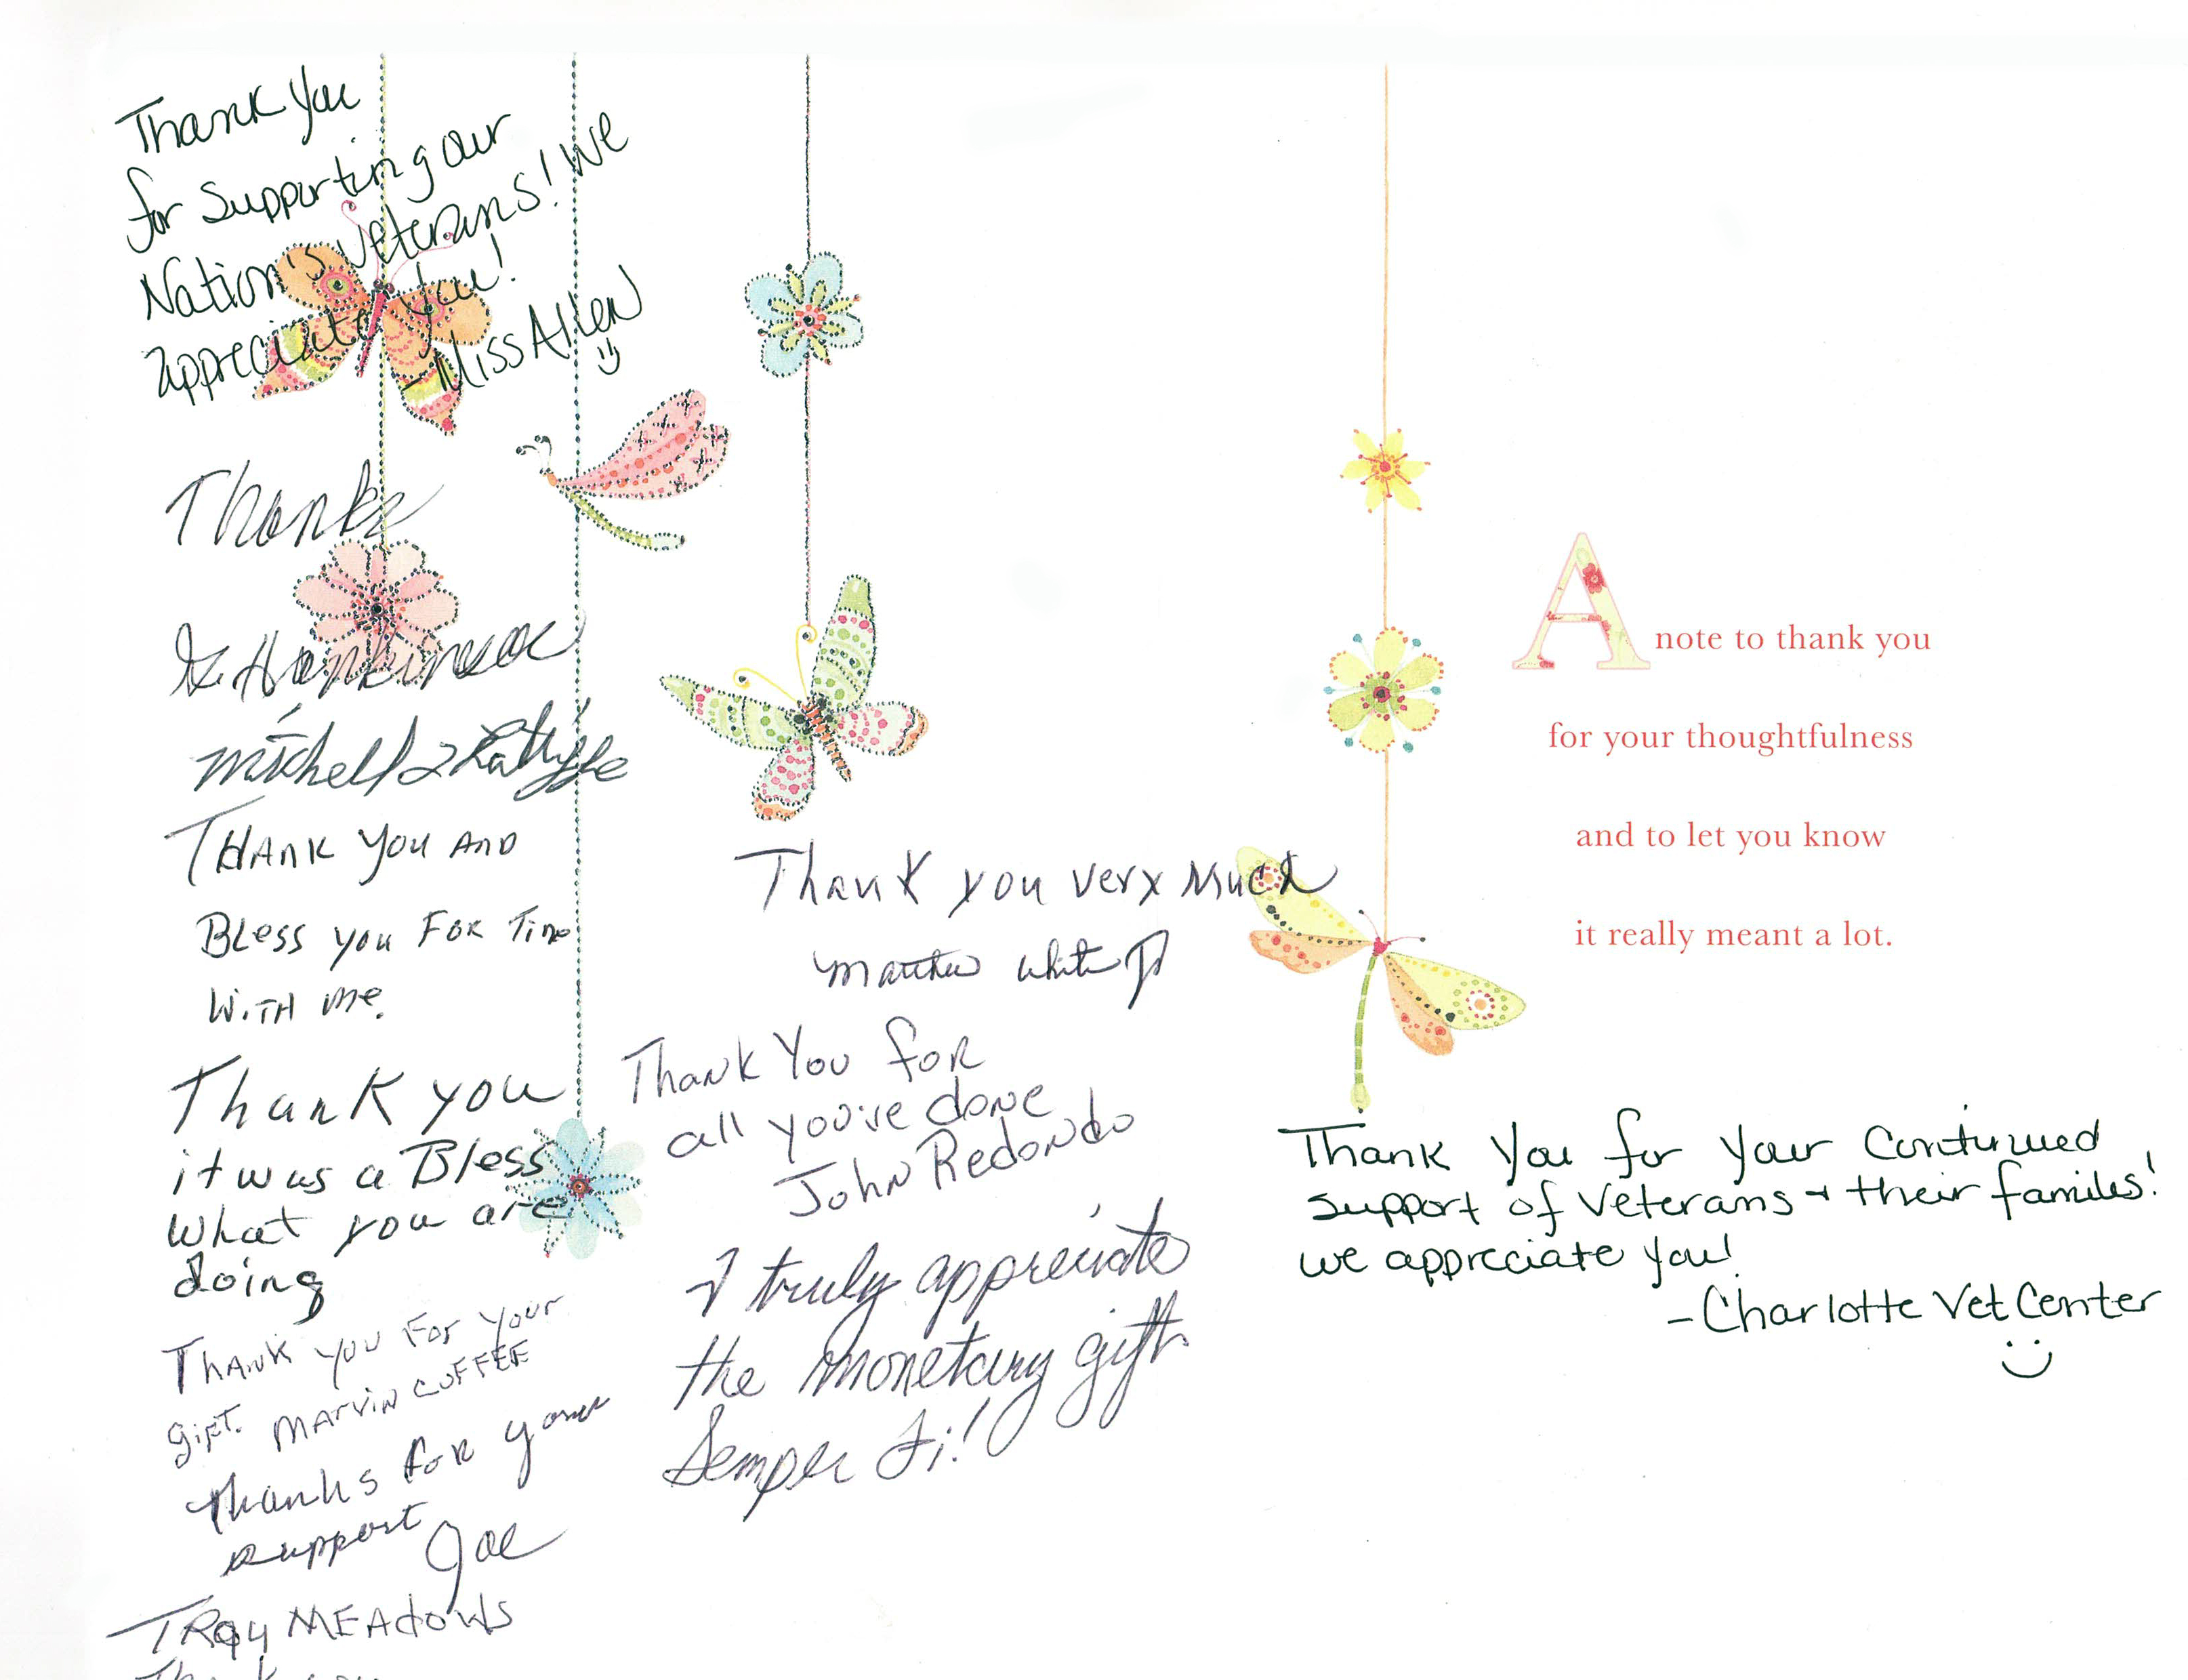 Thank You
for Supporting our
Nation's Veterans! We
appreciate you!
-Miss Allen
Thanks
Michell
THANK YOU AND
BLess you FOR Time
WITH me.
Thank you
it was a Bless
what you are
doing
THANK YOU For Your
gift. MARVIN COFFEE
Thanks for your
support
Joe
TROY MEADOWS
Thank you
Thank you very Much
Matthew White
Thank You for
all you've done
John Redondo
I truly appreciate
the monetary gift.
Semper Fi!
A note to thank you
for your thoughtfulness
and to let you know
it really meant a lot.
Thank You for your Continued
support of Veterans + their families!
we appreciate you!
-Charlotte Vet Center